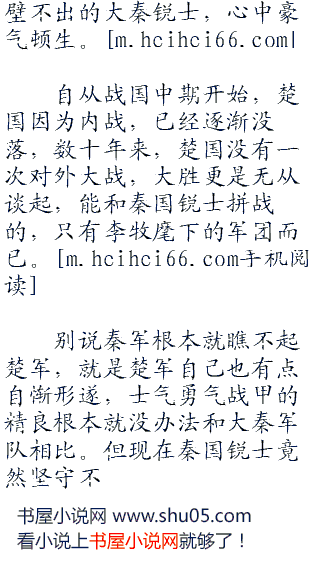 壁不出的大秦锐士，心中豪
气顿生。[m.hcihci66.com|
自从战国中期开始，楚
国因为内战，已经逐渐没
落，数十年来，楚国没有一
次对外大战，大胜更是无从
谈起，能和秦国锐士拼战
的，只有李牧麾下的军团而
已。[m.hcihci66.com手机阅
读]
别说秦军根本就瞧不起
楚军，就是楚军自己也有点
自惭形遂，士气勇气战甲的
精良根本就没办法和大秦军
队相比。但现在秦国锐士竟
然坚守不
书屋小说网 www.shu05.com
看小说上书屋小说网就够了！